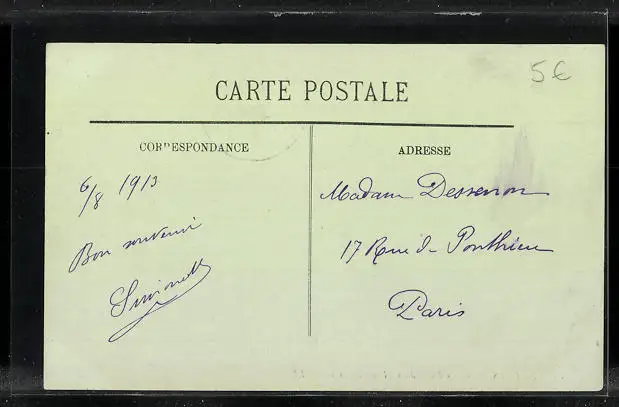 5€
CARTE POSTALE
CORRESPONDANCE
6/8 1913
Bon souvenir
ADRESSE
Madame
17 Rue de Ponthieu
Paris